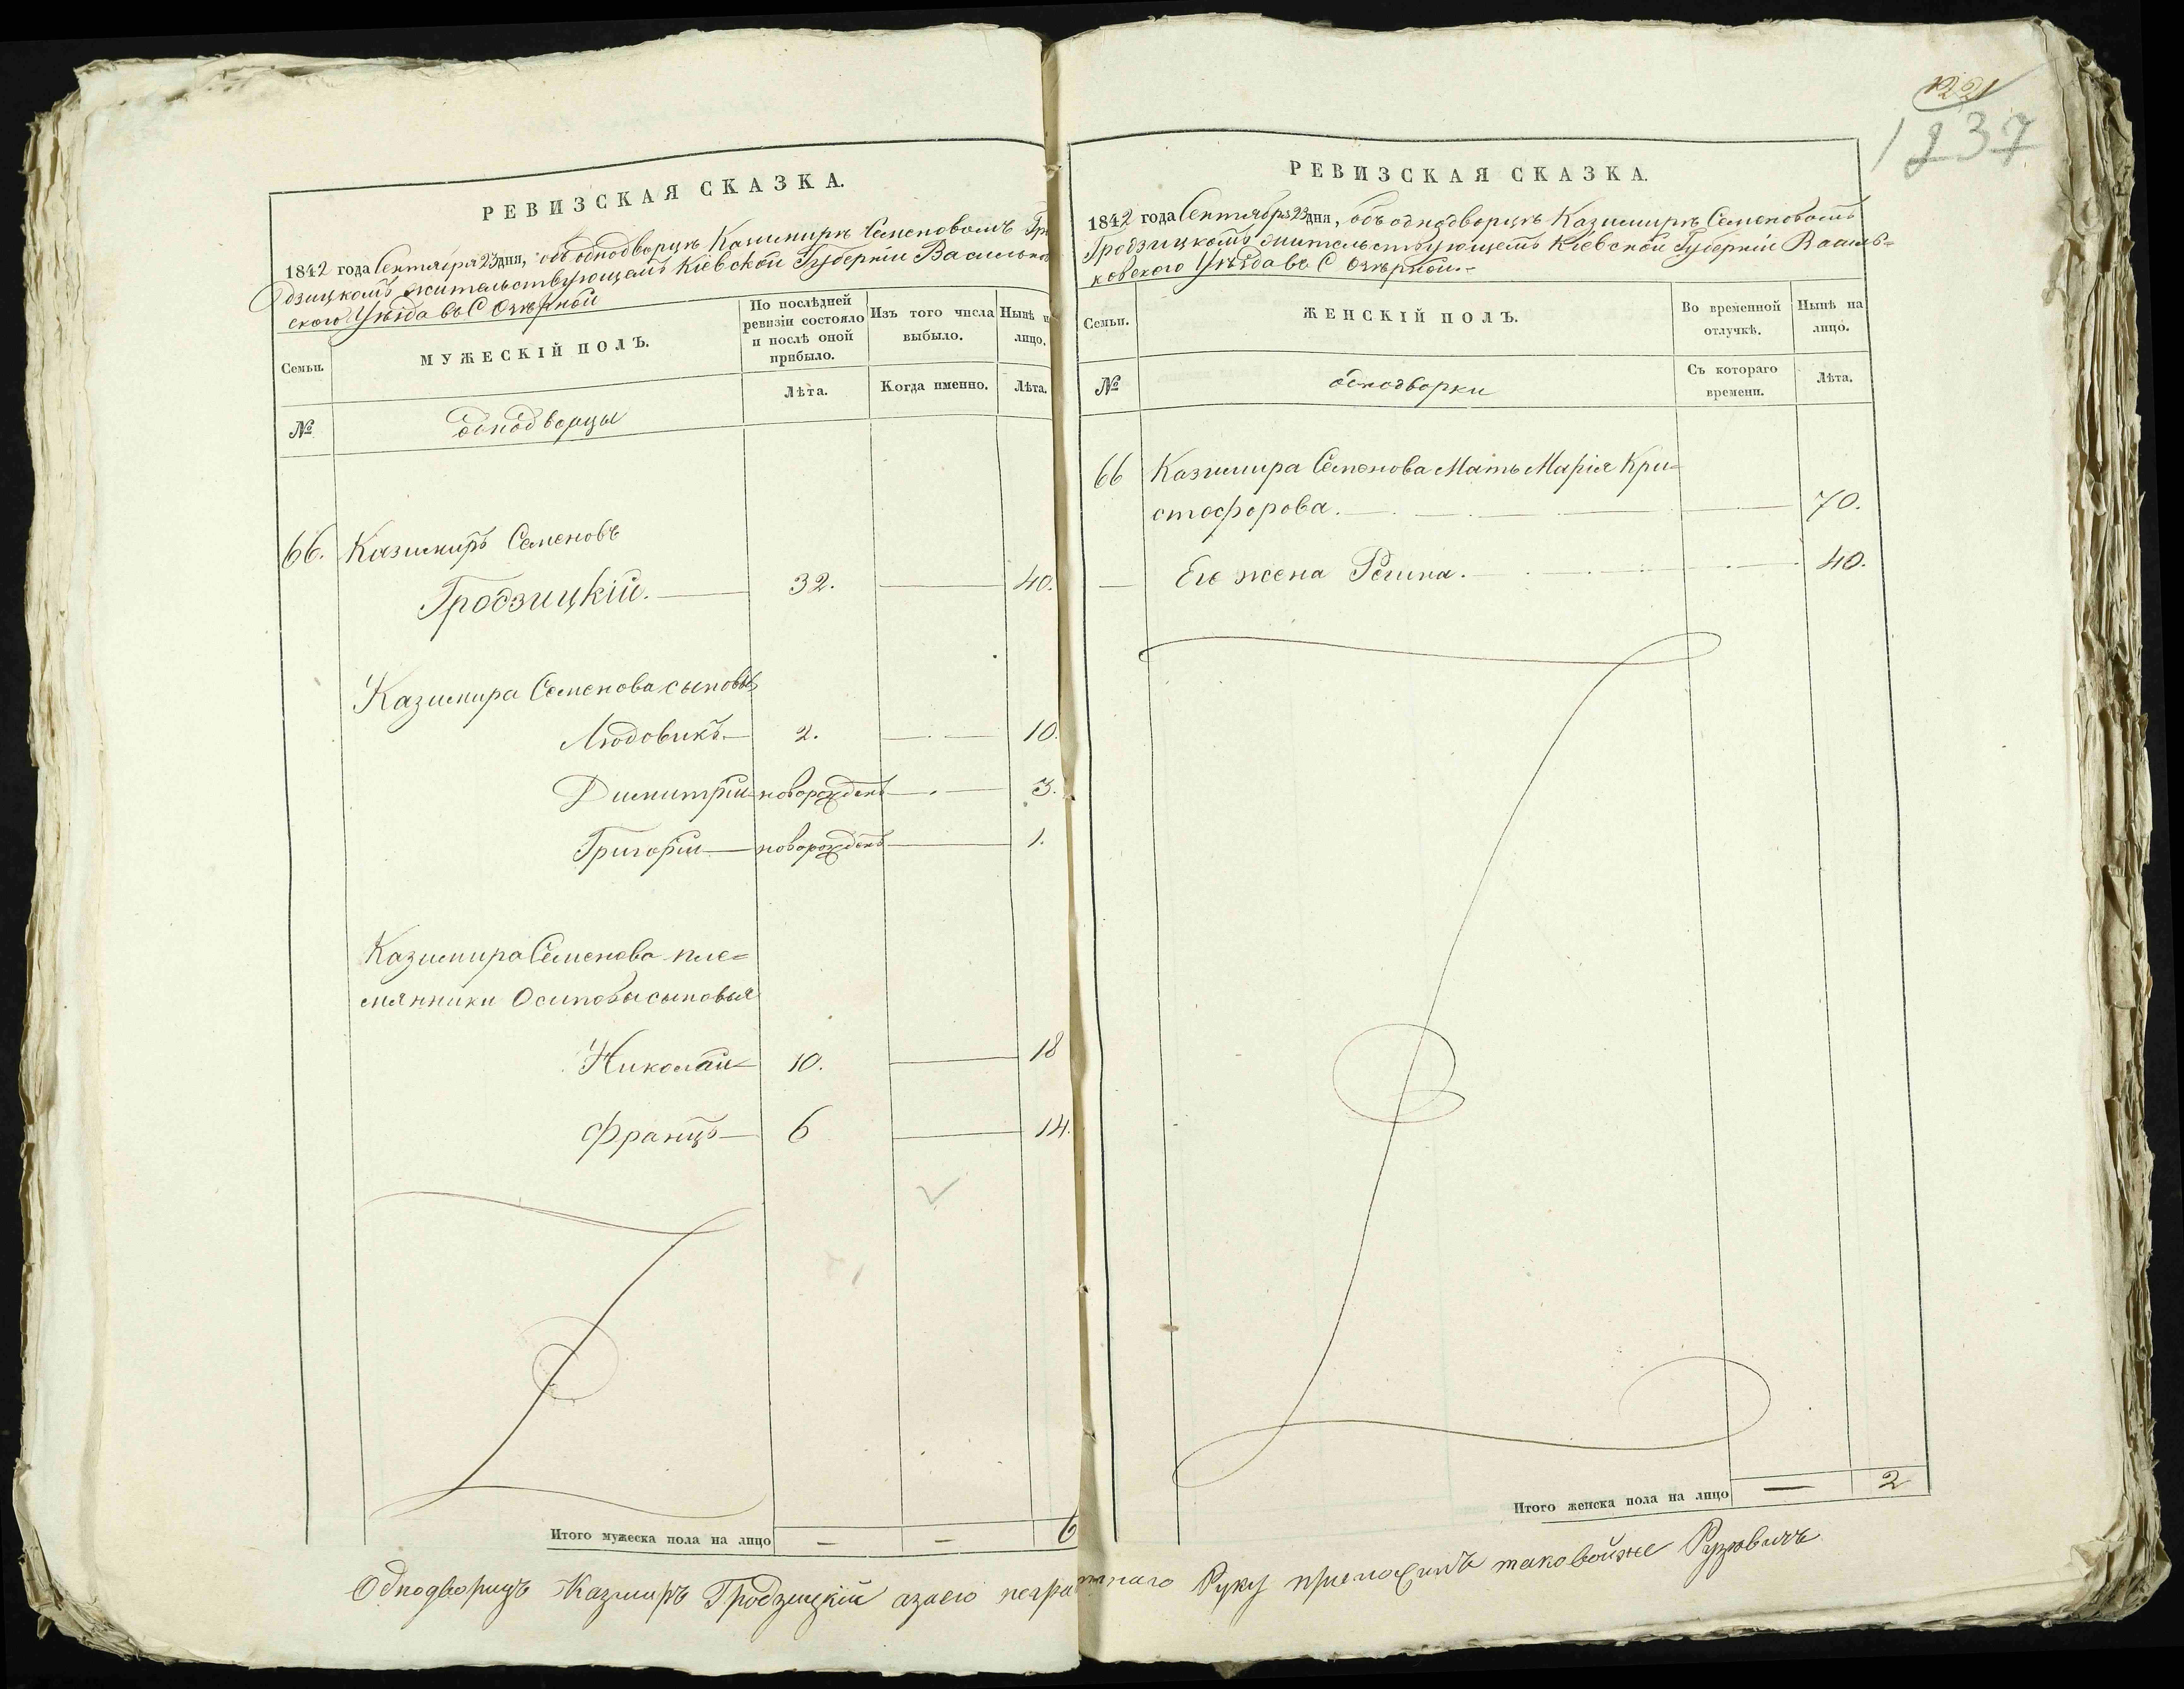 РЕВИЗСКАЯ СКАЗКА.
1842 года Сентября 23 дня, объ однодворцѣ Казимирѣ Семеновомъ Гро
дзицкомъ жительствующемъ Кіевской Губерніи Васильков
ского Уѣзда въ С Озѣрной
Семьи.
МУЖЕСКІЙ ПОЛЪ.
По послѣдней ревизіи состояло и послѣ оной прибыло.
Изъ того числа выбыло.
Нынѣ на лицо.
№
однодворцы
Лѣта.
Когда именно.
Лѣта.
66. Казимиръ Семеновъ
Гродзицкій. — 32. — 40.
Казимира Семенова сыновья
Людовикъ — 2. — 10.
Димитрій — новорожденъ — 3.
Григорій — новорожденъ — 1.
Казимира Семенова пле=
мянники Осиповы сыновья
Николай — 10. — 18
Францъ — 6 — 14.
Итого мужеска пола на лицо — — 6
Однодворецъ Казимиръ Гродзицкій азаего неграмотнаго Руку приложилъ таковойже Рузювичъ
1221
1237
РЕВИЗСКАЯ СКАЗКА.
1842 года Сентября 23 дня, объ однодворцѣ Казимирѣ Семеновомъ
Гродзицкомъ жительствующемъ Кіевской Губерніи Василь=
ковского Уѣзда въ С Озѣрной.=
Семьи.
ЖЕНСКІЙ ПОЛЪ.
Во временной отлучкѣ.
Нынѣ на лицо.
№
однодворки
Съ котораго времени.
Лѣта.
66 Казимира Семенова Мать Марія Кри=
стофорова. — — 70.
— Его жена Регина. — 40.
Итого женска пола на лицо — 2